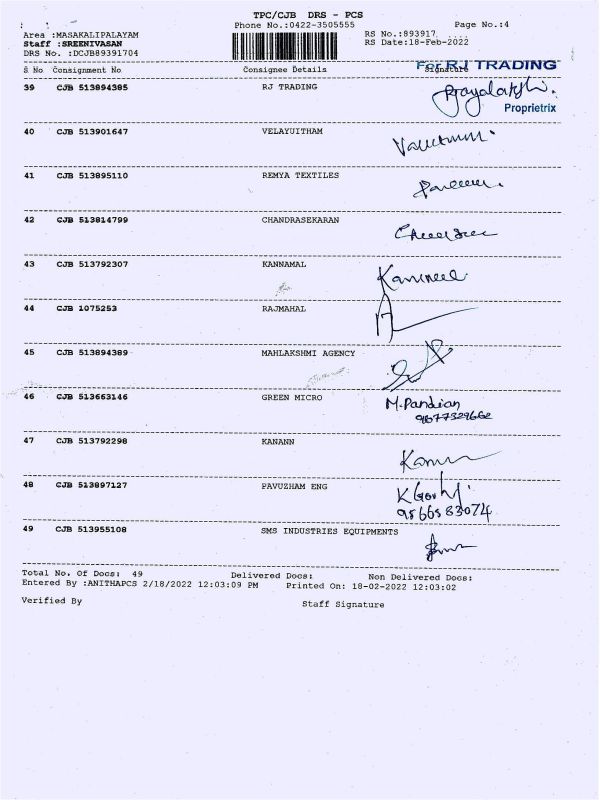 TPC/CJB DRS - PCS
Phone No.:0422-3505555 Page No.:4
Area :MASAKALIPALAYAM RS No.:893917
Staff :SREENIVASAN RS Date:18-Feb-2022
DRS No. :DCJB89391704
S No Consignment No Consignee Details Signature
For RJ TRADING
39 CJB 513894385 RJ TRADING
Proprietrix
40 CJB 513901647 VELAYUITHAM
41 CJB 513895110 REMYA TEXTILES
42 CJB 513814799 CHANDRASEKARAN
43 CJB 513792307 KANNAMAL
44 CJB 1075253 RAJMAHAL
45 CJB 513894389 MAHLAKSHMI AGENCY
46 CJB 513663146 GREEN MICRO M.Pandian
47 CJB 513792298 KANANN
48 CJB 513897127 PAVUZHAM ENG
9566583074
49 CJB 513955108 SMS INDUSTRIES EQUIPMENTS
Total No. Of Docs: 49 Delivered Docs: Non Delivered Docs:
Entered By :ANITHAPCS 2/18/2022 12:03:09 PM Printed On: 18-02-2022 12:03:02
Verified By Staff Signature